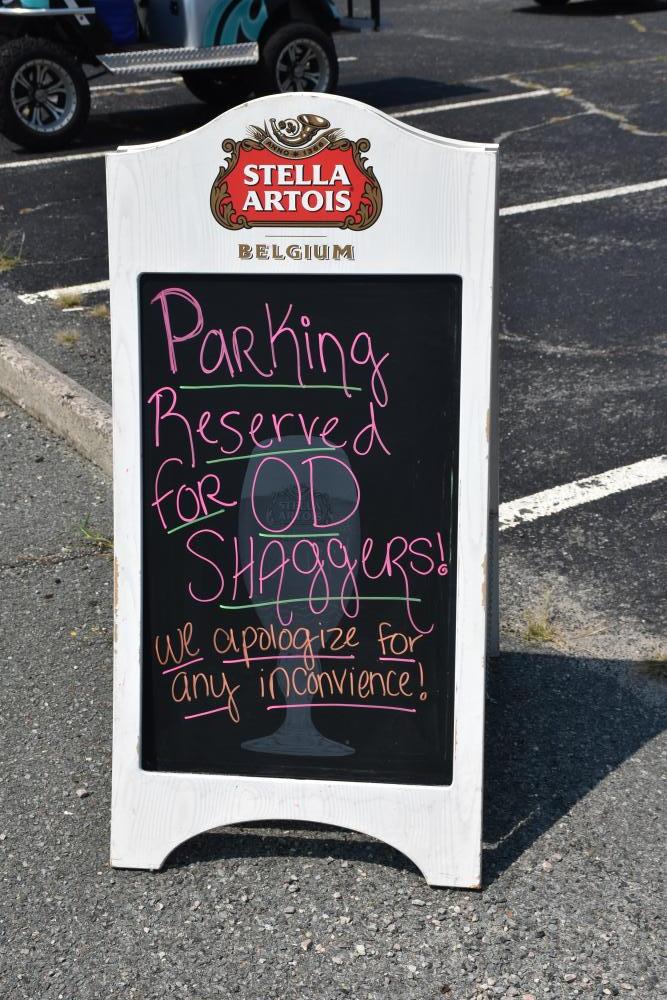 ANNO 1366
STELLA
ARTOIS
BELGIUM
Parking
Reserved
for OD
SHAggers!
STELLA
ARTOIS
we apologize for
any inconvience!